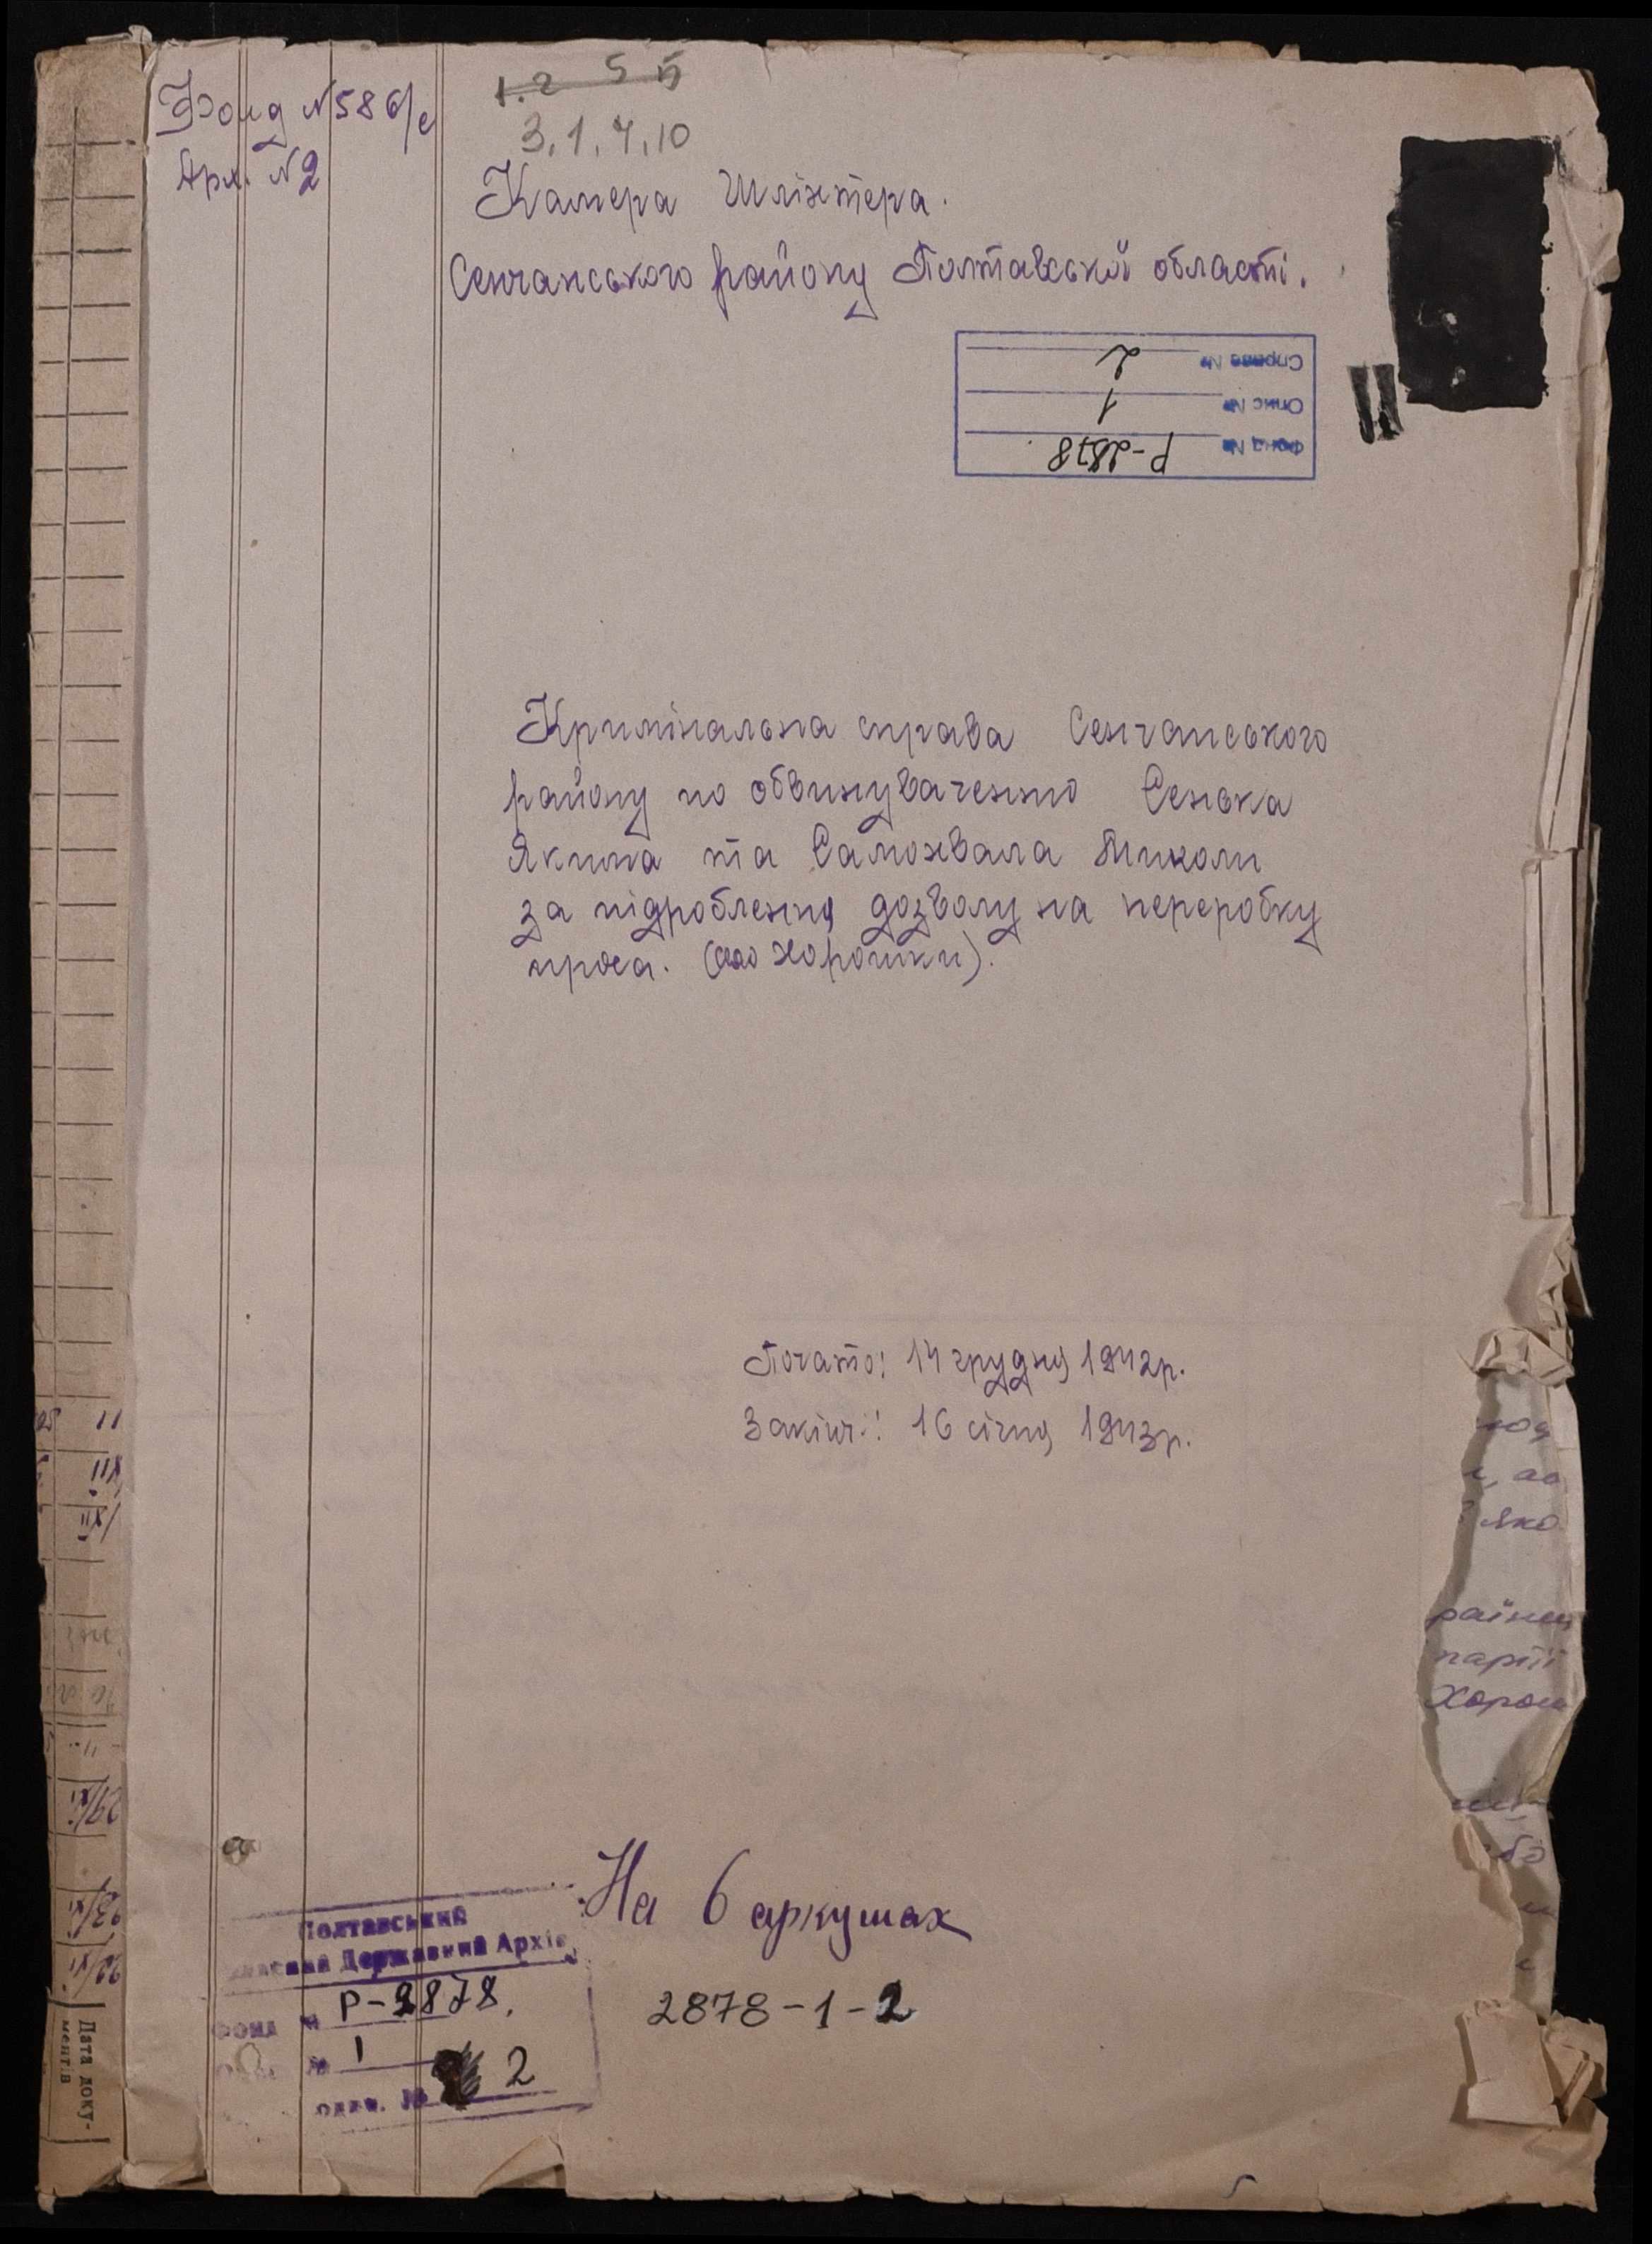 Фонд №586/с
Арх. №2
1.2 5 5
3.1.4.10
Камера Шліхтера.
Сенчанського району Полтавської області.
Справа № 2
Опис № 1
Фонд № Р-2878
Кримінальна справа Сенчанського
району по обвинуваченню Сенька
Якима та Самохвала Миколи
за підроблення дозволу на переробку
проса. (село Хорошки).
Почато: 14 грудня 1942р.
Закінч.: 16 січня 1943р.
раїнец
партії
Хорош
На 6 аркушах
2878-1-2
Полтавський
Державний Архів
ФОНД № Р-2878.
№ 1
№ 2
Дата доку-
ментів